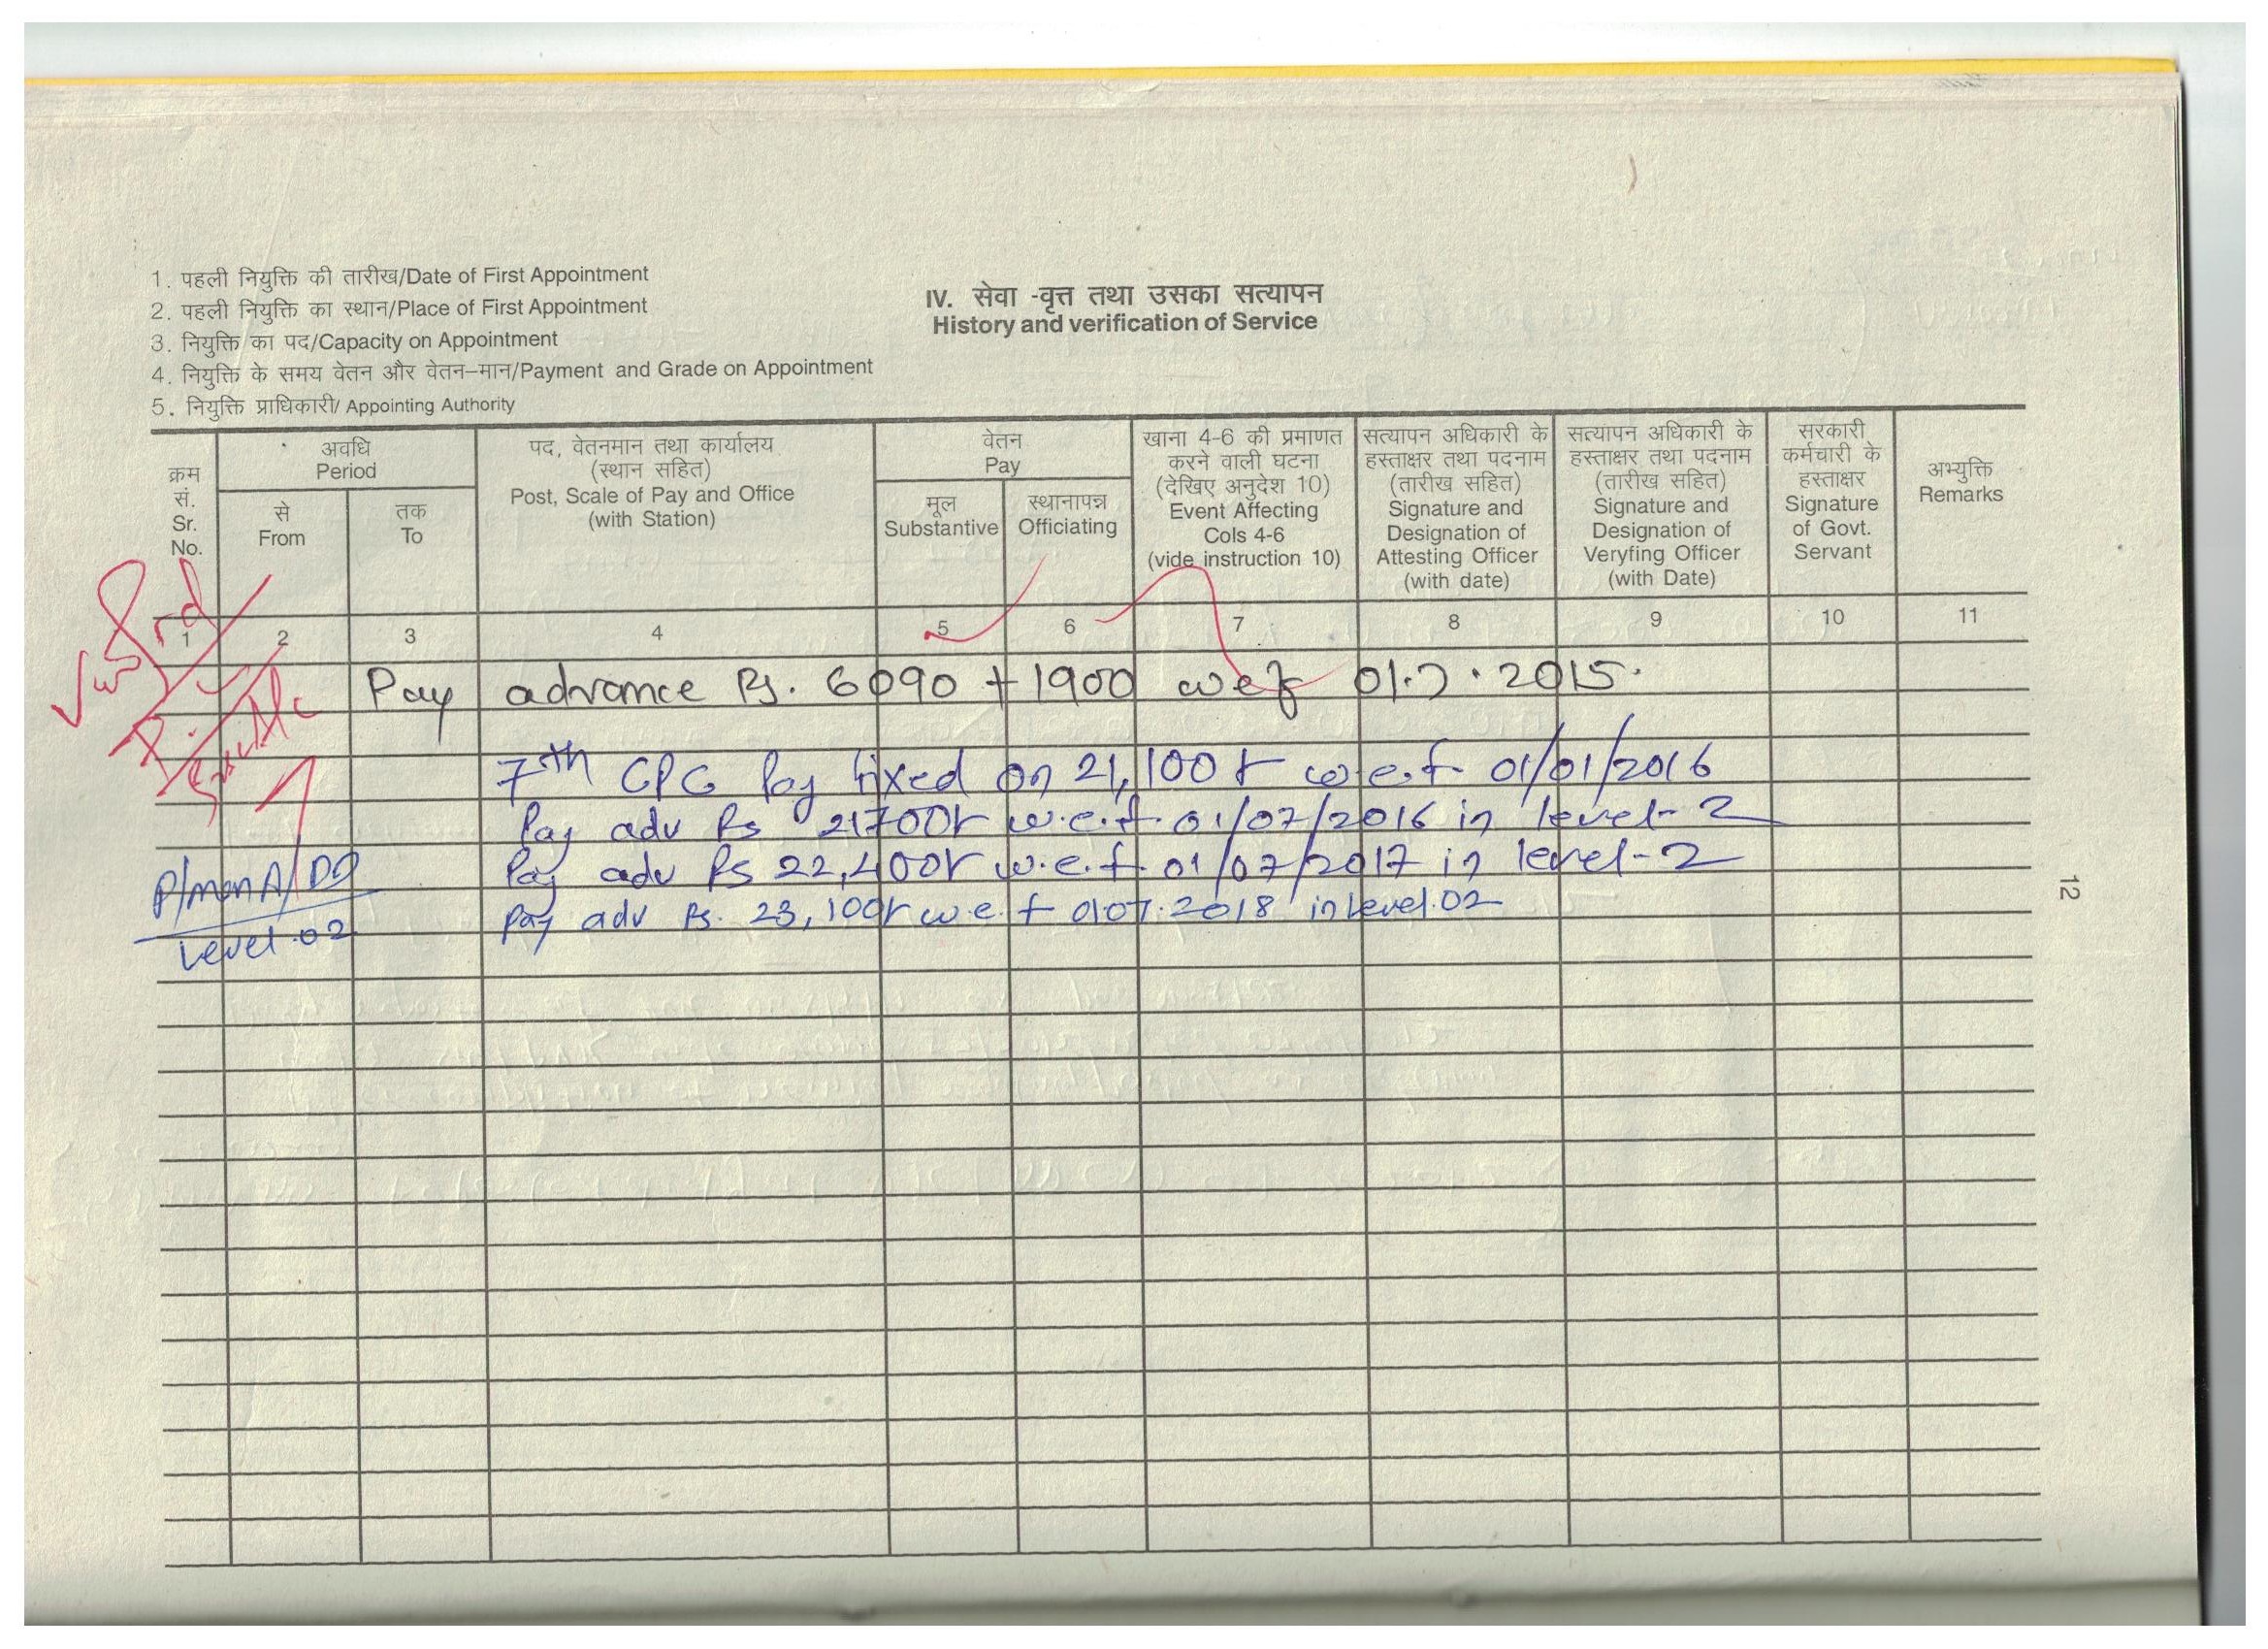 1. पहली नियुक्ति की तारीख/Date of First Appointment
2. पहली नियुक्ति का स्थान/Place of First Appointment
3. नियुक्ति का पद/Capacity on Appointment
4. नियुक्ति के समय वेतन और वेतन-मान/Payment and Grade on Appointment
5. नियुक्ति प्राधिकारी/ Appointing Authority
IV. सेवा -वृत्त तथा उसका सत्यापन
History and verification of Service
क्रम
सं.
Sr.
No.
अवधि
Period
से
From
तक
To
पद, वेतनमान तथा कार्यालय
(स्थान सहित)
Post, Scale of Pay and Office
(with Station)
वेतन
Pay
मूल
Substantive
स्थानापन्न
Officiating
खाना 4-6 की प्रमाणत
करने वाली घटना
(देखिए अनुदेश 10)
Event Affecting
Cols 4-6
(vide instruction 10)
सत्यापन अधिकारी के
हस्ताक्षर तथा पदनाम
(तारीख सहित)
Signature and
Designation of
Attesting Officer
(with date)
सत्यापन अधिकारी के
हस्ताक्षर तथा पदनाम
(तारीख सहित)
Signature and
Designation of
Veryfing Officer
(with Date)
सरकारी
कर्मचारी के
हस्ताक्षर
Signature
of Govt.
Servant
अभ्युक्ति
Remarks
1 2 3 4 5 6 7 8 9 10 11
Pay advance Rs. 6090 + 1900 wef 01.7.2015.
7th CPC Pay fixed on 21,100/- w.e.f. 01/01/2016
Pay adv Rs 21700/- w.e.f. 01/07/2016 in level-2
Pay adv Rs 22,400/- w.e.f. 01/07/2017 in level-2
Pay adv Rs. 23,100/- w.e.f 01.07.2018 in Level.02
P/man A/
Level.02
12